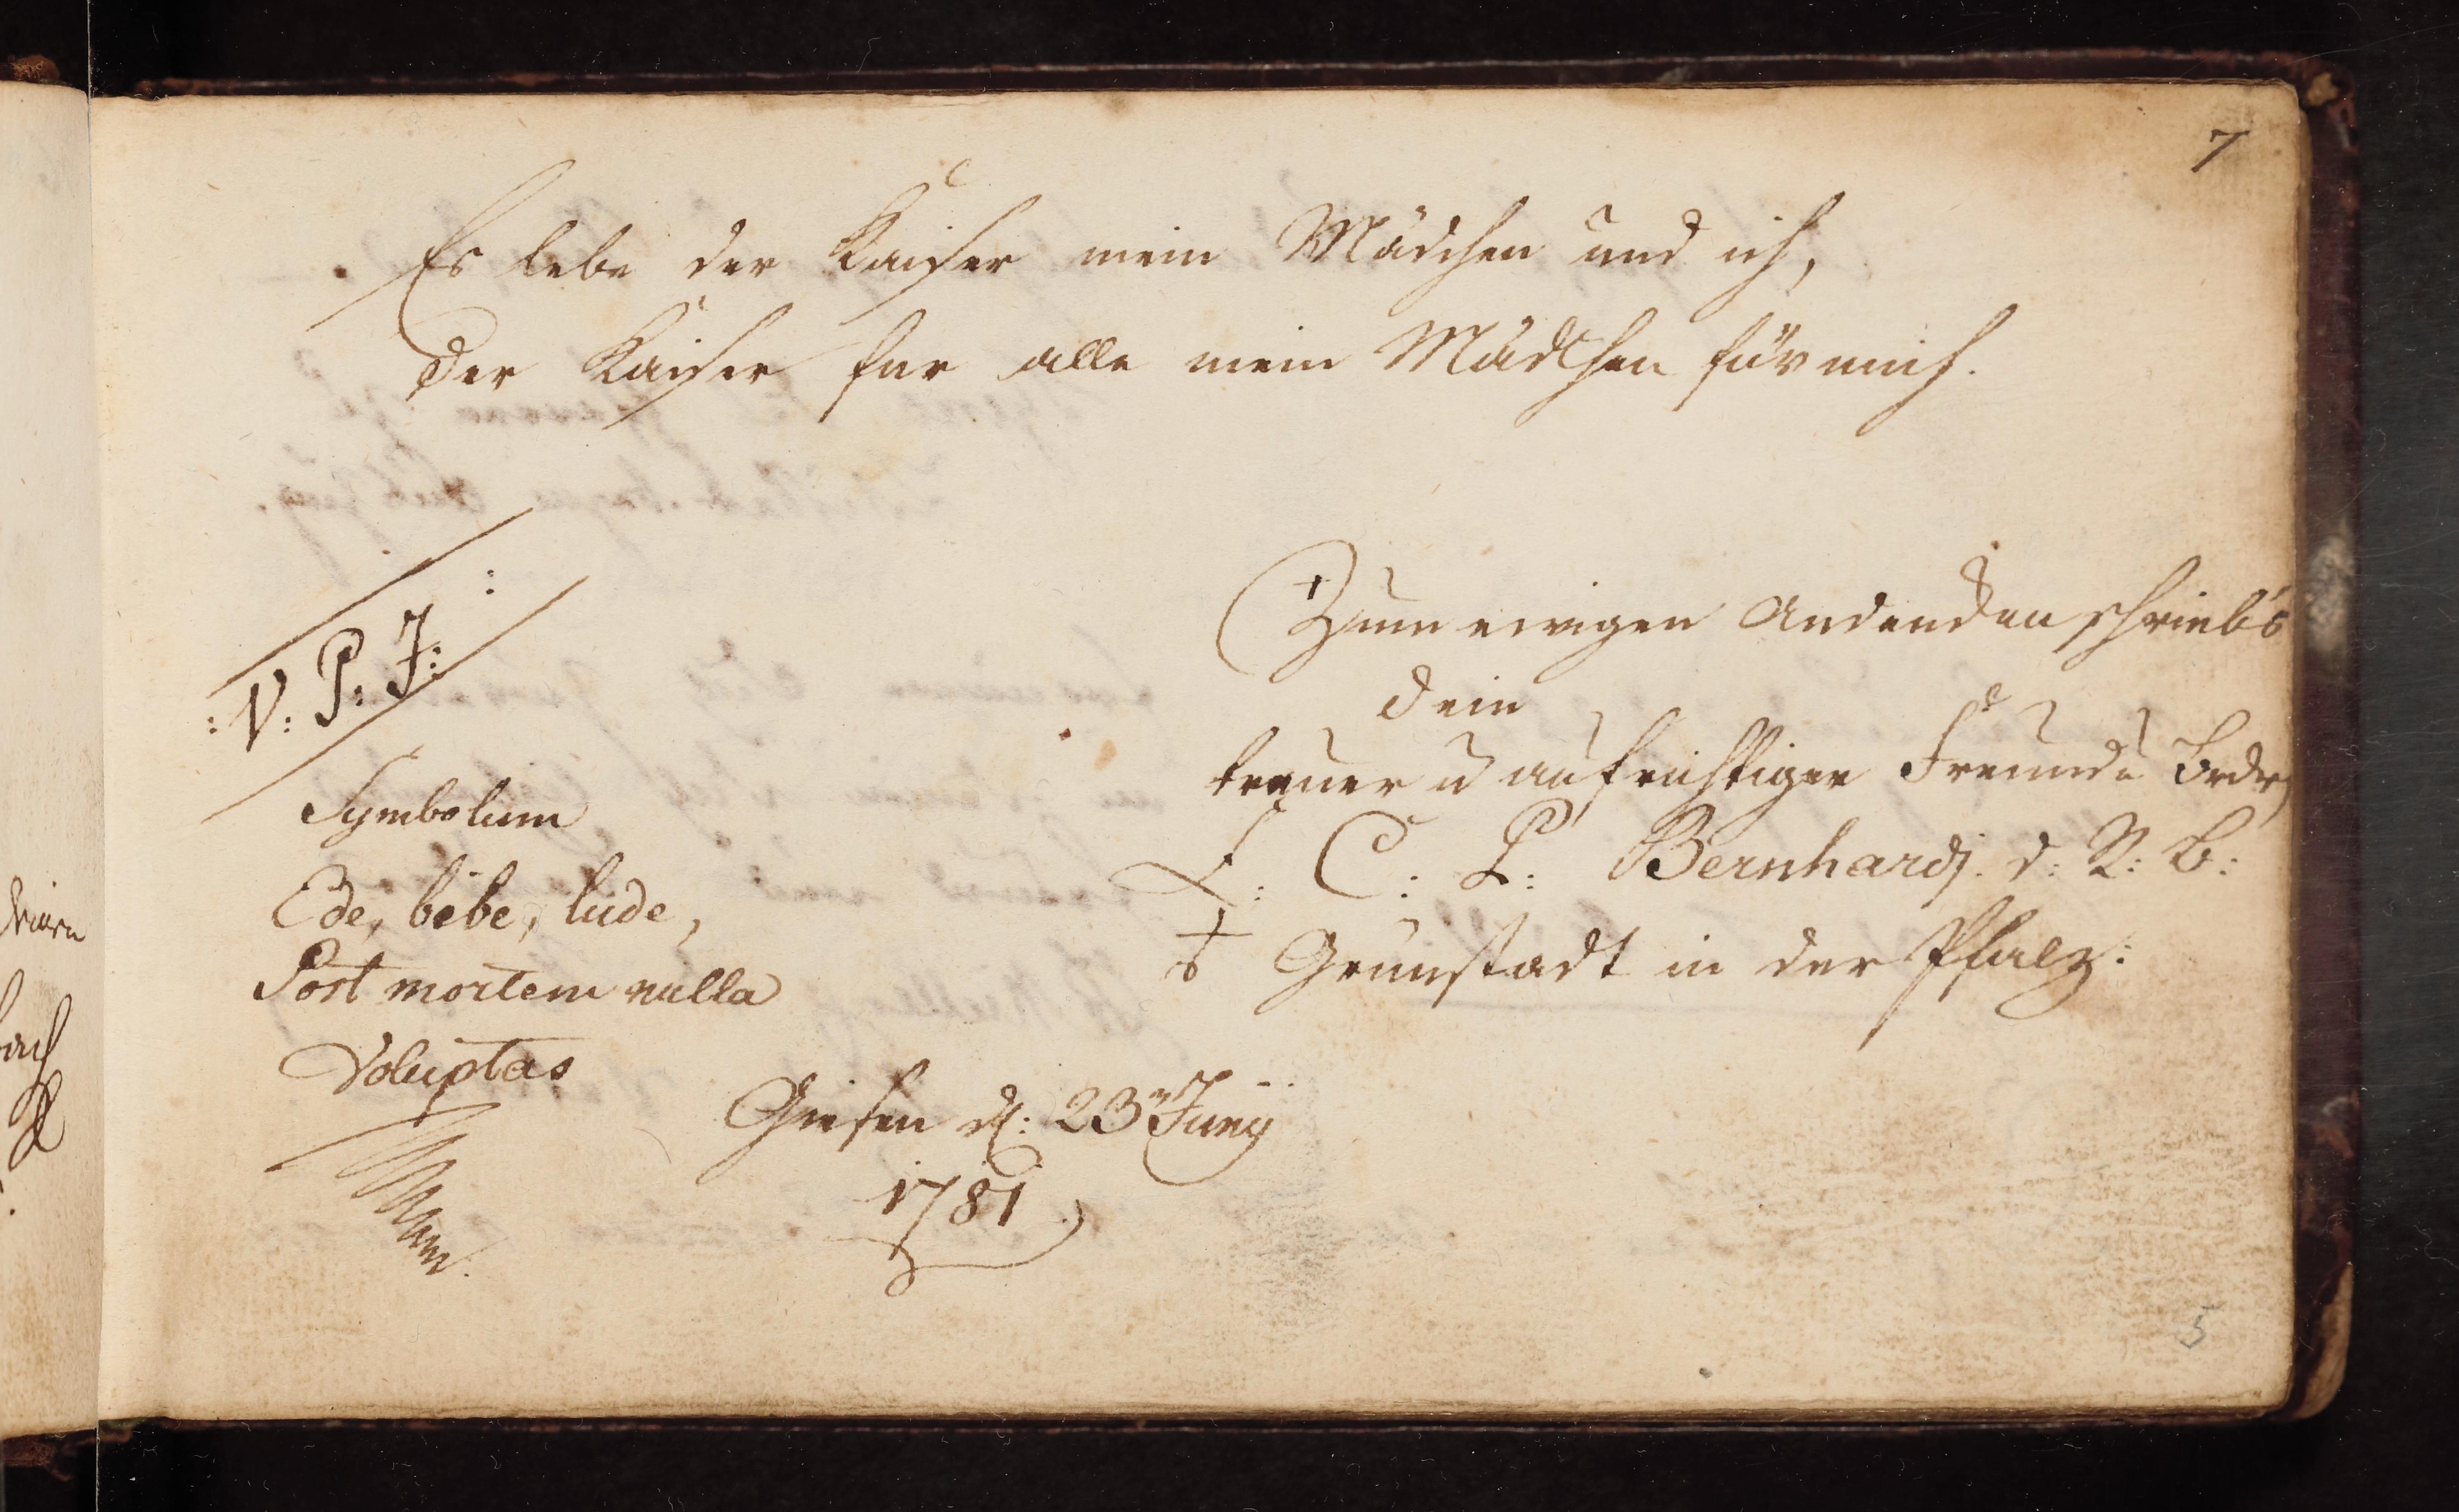 7
Es lebe der Kaiser mein Mädchen und ich,
Der Kaiser fur alle mein Mädchen für mich.
: V: P: J: :
Symbolum
Ede, bibe, lude,
Post mortem nulla
Voluptas
Zum ewigen Andenken schrieb's
dein
treuer u aufrichtiger Freund u Brdr
L: C: L: Bernhardj. d: R: B:
Grünstadt in der Pfalz:
Giesen d: 23ᵗ Junÿ
1781
5